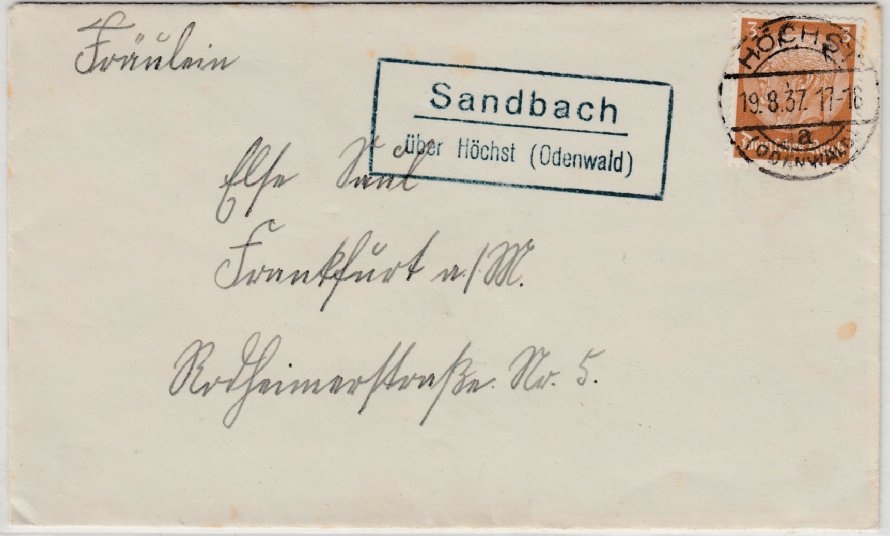 Fräulein
Sandbach
über Höchst (Odenwald)
Else
Frankfurt a/M.
Rodheimerstraße Nr. 5.
3 3
HÖCHST
19.8.37. 17-18
a
(ODENWALD)